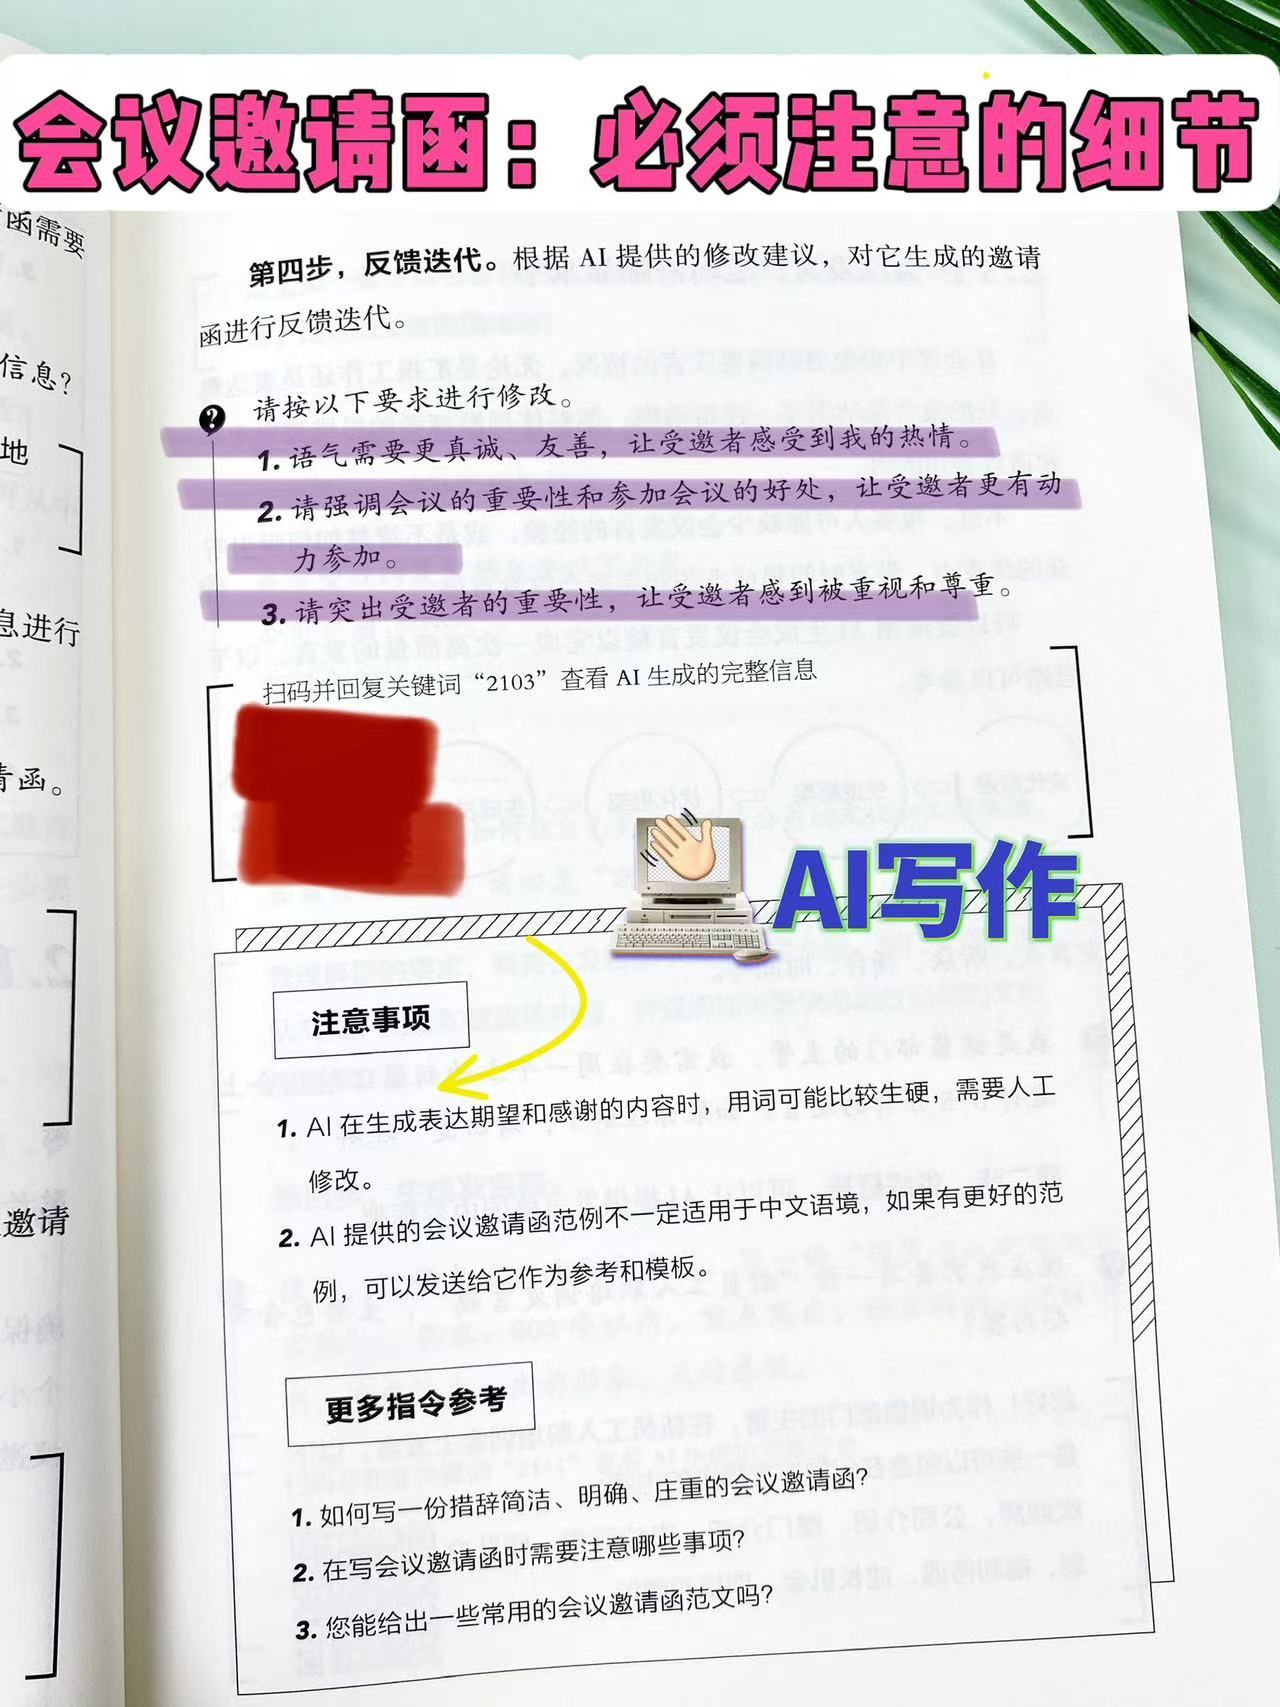 会议邀请函：必须注意的细节
函需要
信息？
地
息进行
青函。
邀请
第四步，反馈迭代。根据 AI 提供的修改建议，对它生成的邀请
函进行反馈迭代。
请按以下要求进行修改。
1. 语气需要更真诚、友善，让受邀者感受到我的热情。
2. 请强调会议的重要性和参加会议的好处，让受邀者更有动
力参加。
3. 请突出受邀者的重要性，让受邀者感到被重视和尊重。
扫码并回复关键词“2103”查看 AI 生成的完整信息
AI写作
注意事项
1. AI 在生成表达期望和感谢的内容时，用词可能比较生硬，需要人工
修改。
2. AI 提供的会议邀请函范例不一定适用于中文语境，如果有更好的范
例，可以发送给它作为参考和模板。
更多指令参考
1. 如何写一份措辞简洁、明确、庄重的会议邀请函？
2. 在写会议邀请函时需要注意哪些事项？
3. 您能给出一些常用的会议邀请函范文吗？